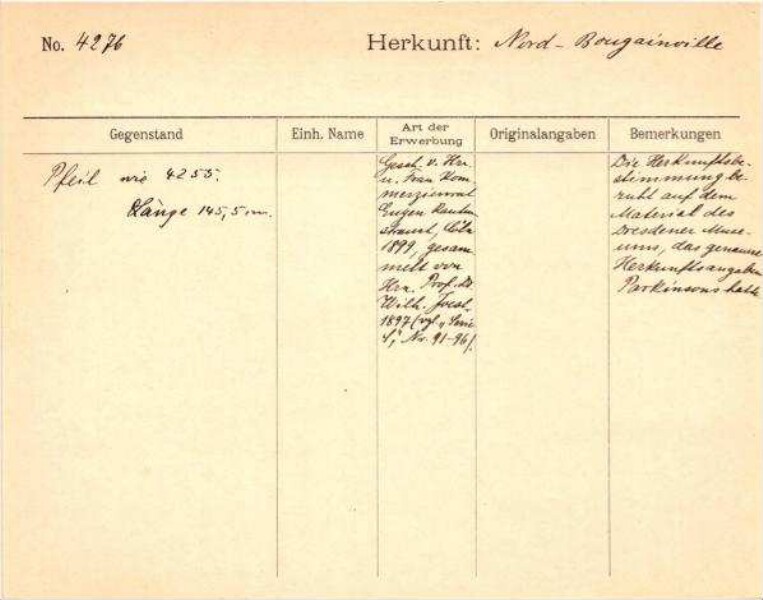 No. 4276
Herkunft: Nord-Bougainville
Gegenstand
Einh. Name
Art der
Erwerbung
Originalangaben
Bemerkungen
Pfeil wie 4255.
Länge 145,5 cm.
Gesch. v. Hrn
u. Frau Kom-
merzienrat
Eugen Rauten-
strauch, Cöln
1899, gesam-
melt von
Hrn. Prof. Dr.
Wilh. Joest,
1897 (vgl. "Serie
Nr. 91-96).
Die Herkunftsbe-
stimmung be-
ruht auf dem
Material des
Dresdener Muse-
ums, das genaue
Herkunftsangaben
Parkinsons hatte